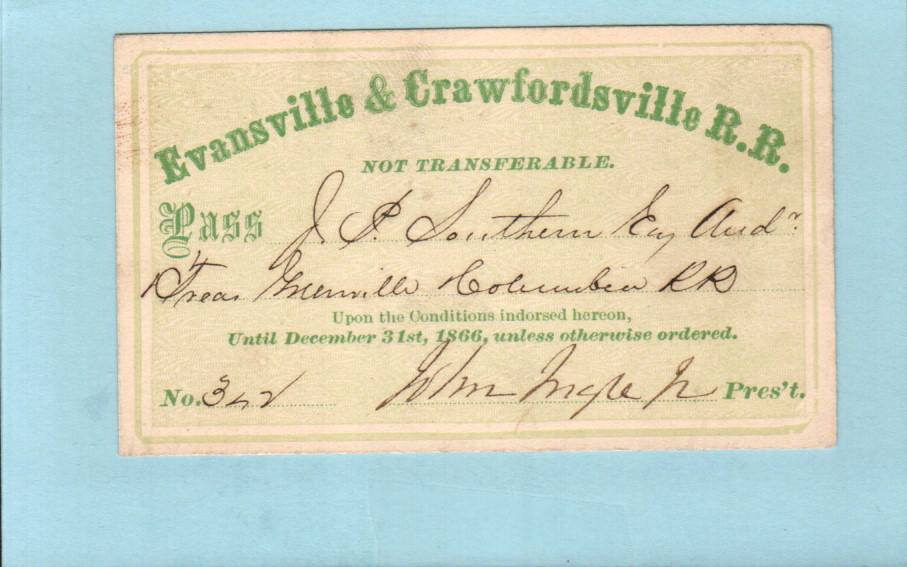 Evansville & Crawfordsville R.R.
NOT TRANSFERABLE.
Pass J. P. Southern Esq Audr.
& Treas Greenville Columbia RR
Upon the Conditions indorsed hereon,
Until December 31st, 1866, unless otherwise ordered.
No. 342 John Ingle Jr Pres't.